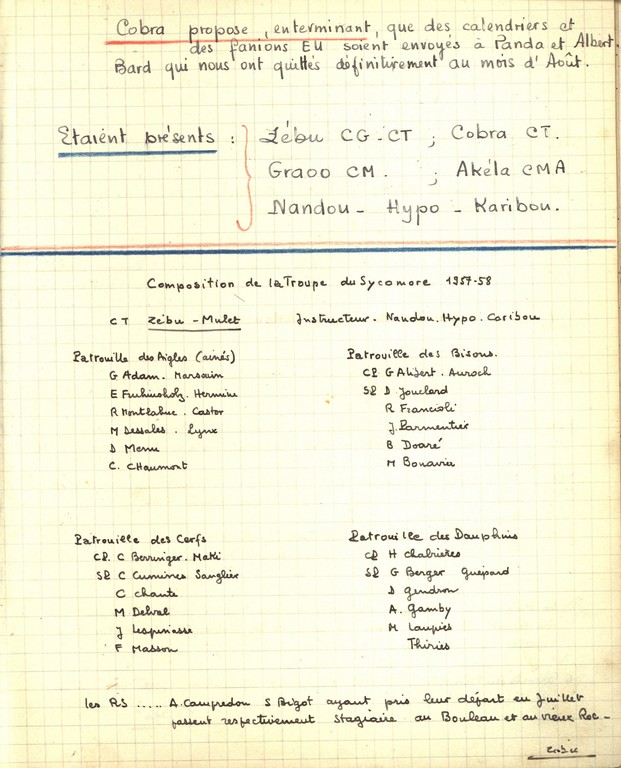 Cobra propose, en terminant, que des calendriers et
des fanions EU soient envoyés à Panda et Albert.
Bard qui nous ont quittés définitivement au mois d'Août.
Etaient présents : Zébu CG-CT ; Cobra CT.
Graoo CM. ; Akéla CMA
Nandou - Hypo - Karibou.
Composition de la Troupe du Sycomore 1957-58
CT Zébu - Mulet Instructeur. Nandou. Hypo. Caribou
Patrouille des Aigles (ainés)
G Adam. Marsouin
E Fruhinsholz. Hermine
R Montlahuc. Castor
M Dessales. Lynx
D Menu
C. CHaumont
Patrouille des Bisons.
CP. G Alibert. Auroch
SP D Jouclard
R Francioli
J. Parmentier
B Doaré
M Bonavia
Patrouille des Cerfs
CP. C Berninger. Maki
SP C Cumines Sanglier
C Chante
M Delval
J Lespinasse
F Masson
Patrouille des Dauphins
CP H Chabrières
SP G Berger Guépard
D Gendron
A. Gamby
M Laupies
Thiries
les RS ..... A. Campredon S Bigot ayant pris leur départ en Juillet
passent respectivement Stagiaire au Bouleau et au vieux Roc -